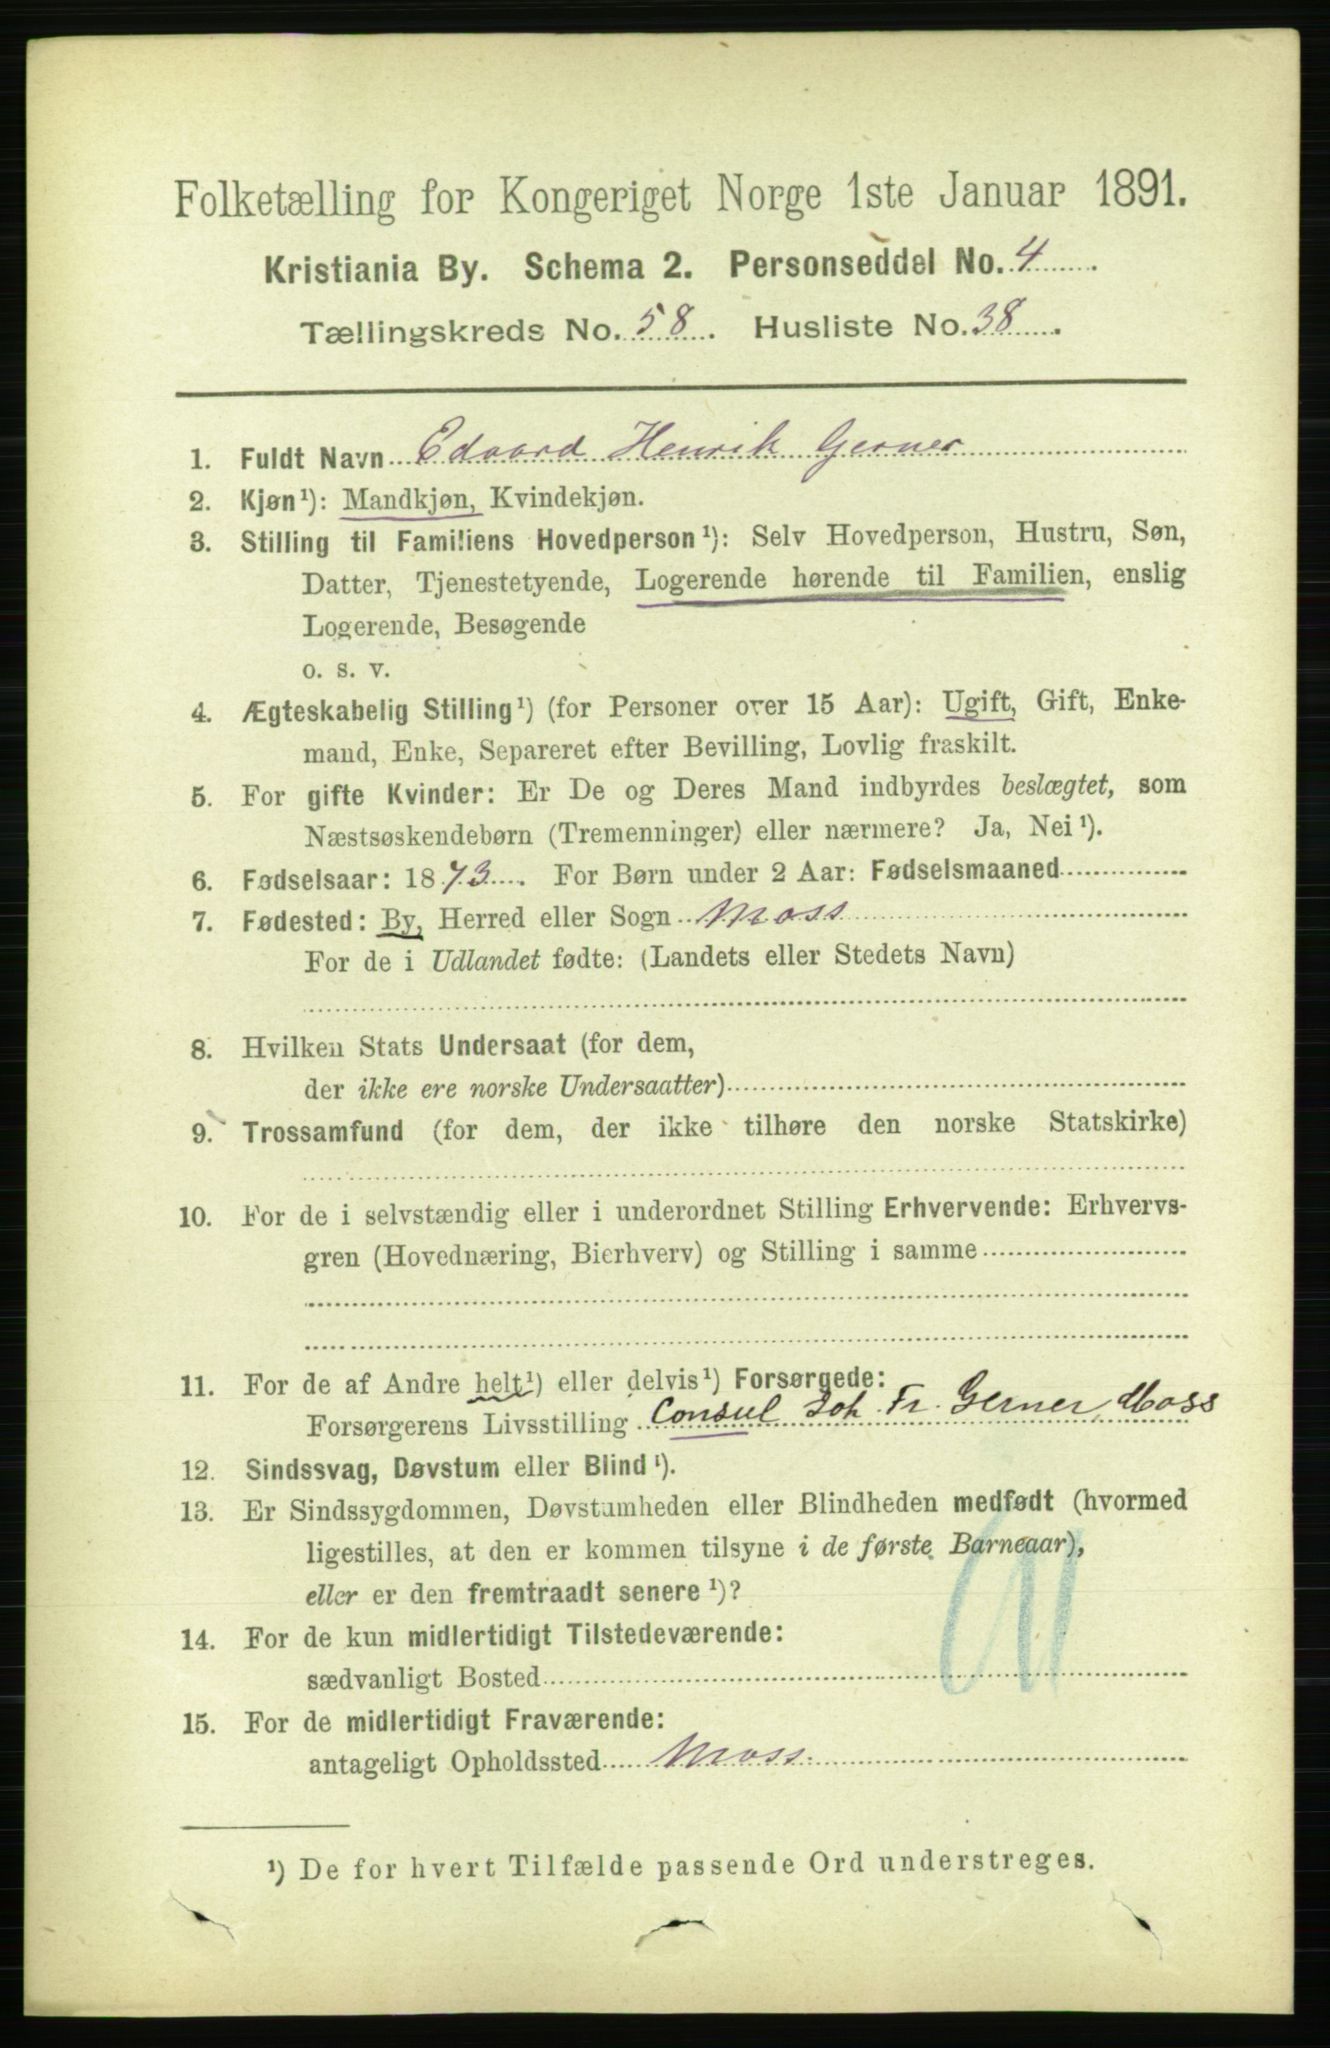 Folketælling for Kongeriget Norge 1ste Januar 1891.
Kristiania By. Schema 2. Personseddel No. 4
Tællingskreds No. 58. Husliste No. 38.
1. Fuldt Navn Edvard Henrik Gerner
2. Kjøn¹): Mandkjøn, Kvindekjøn.
3. Stilling til Familiens Hovedperson¹): Selv Hovedperson, Hustru, Søn,
Datter, Tjenestetyende, Logerende hørende til Familien, enslig
Logerende, Besøgende
o. s. v.
4. Ægteskabelig Stilling¹) (for Personer over 15 Aar): Ugift, Gift, Enke-
mand, Enke, Separeret efter Bevilling, Lovlig fraskilt.
5. For gifte Kvinder: Er De og Deres Mand indbyrdes beslægtet, som
Næstsøskendebørn (Tremenninger) eller nærmere? Ja, Nei¹).
6. Fødselsaar: 1873. For Børn under 2 Aar: Fødselsmaaned
7. Fødested: By, Herred eller Sogn Moss
For de i Udlandet fødte: (Landets eller Stedets Navn)
8. Hvilken Stats Undersaat (for dem,
der ikke ere norske Undersaatter)
9. Trossamfund (for dem, der ikke tilhøre den norske Statskirke)
10. For de i selvstændig eller i underordnet Stilling Erhvervende: Erhvervs-
gren (Hovednæring, Bierhverv) og Stilling i samme
11. For de af Andre helt¹) eller delvis¹) Forsørgede:
Forsørgerens Livsstilling Consul Joh. Fr. Gerner, Moss
12. Sindssvag, Døvstum eller Blind¹).
13. Er Sindssygdommen, Døvstumheden eller Blindheden medfødt (hvormed
ligestilles, at den er kommen tilsyne i de første Barneaar),
eller er den fremtraadt senere¹)?
14. For de kun midlertidigt Tilstedeværende:
sædvanligt Bosted
15. For de midlertidigt Fraværende:
antageligt Opholdssted Moss.
¹) De for hvert Tilfælde passende Ord understreges.